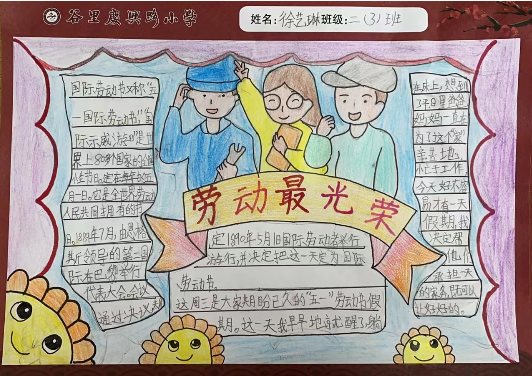 谷里庆兴路小学
姓名:徐艺琳班级:二(3)班
劳动最光荣
国际劳动节又称"五
一国际劳动节""国
际示威游行日"是世
界上80多个国家的全国
性节日。定在每年的五
月一日。它是全世界劳动
人民共同拥有的节
日。1889年7月,由恩格
斯领导的第二国
际在巴黎举行
代表大会会议
通过决议,规
定1890年5月1日国际劳动者举行
游行,并决定把这一天定为国际
劳动节
这周三是大家期盼已久的"五一"劳动节假
期。这一天我早早地就醒了,躺
在床上,想到
了平日里爸爸
妈妈一直
为了这个家
辛苦地
忙亡工作
今天好不容
易才有一天
假期,我
决定帮
他们
承担一天
的家务,既可以
让好好的。